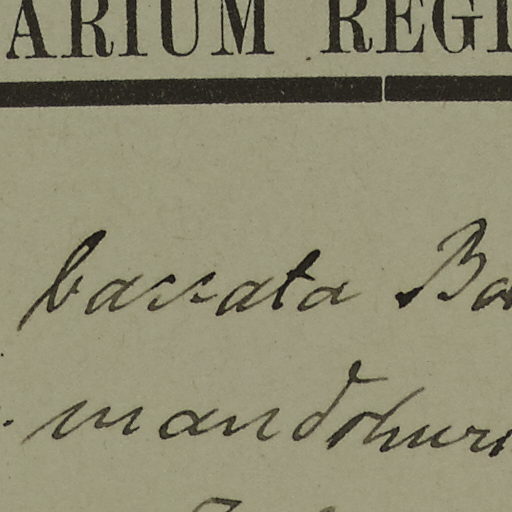 ARIUM REGI
baccata Bo
mandshuri